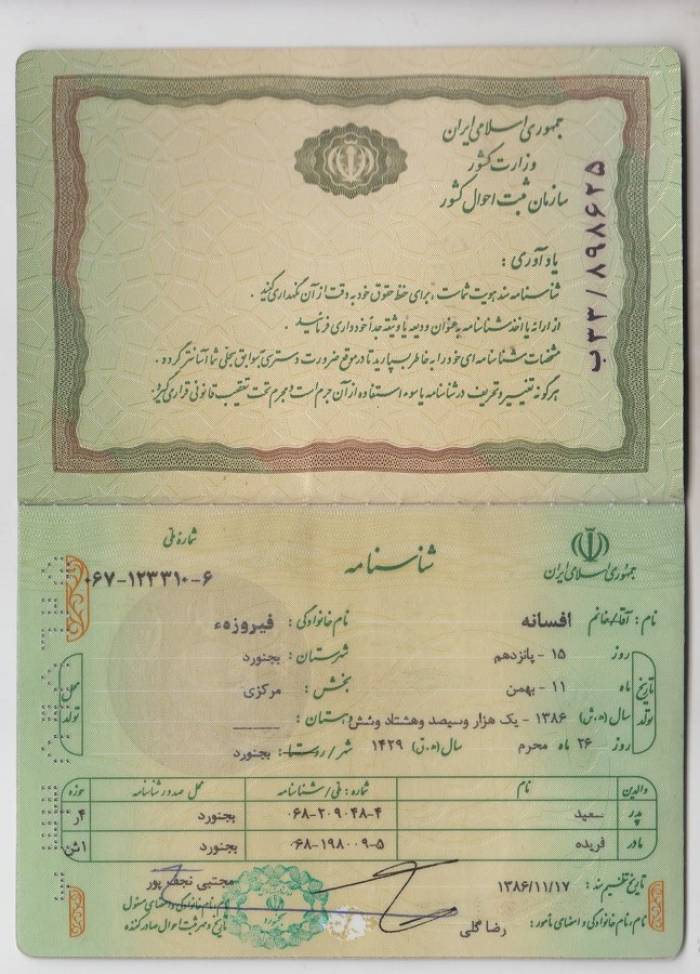 جمهوری اسلامی ایران
وزارت کشور
سازمان ثبت احوال کشور
ب۳۳/۸۹۸۶۲۵
یادآوری :
شناسنامه سند هویت شماست ، برای حفظ حقوق خود به دقت از آن نگهداری کنید .
از ارائه یا اخذ شناسنامه به عنوان ودیعه یا وثیقه جداً خودداری فرمائید .
مشخصات شناسنامه ای خود را به خاطر بسپارید تا در موقع ضرورت دسترسی به سوابق سجلی شما آسانتر گردد .
هرگونه تغییر و تحریف در شناسنامه یا سوء استفاده از آن جرم است و مجرم تحت تعقیب قانونی قرار می گیرد .
جمهوری اسلامی ایران
شناسنامه
شماره ملی
۰۶۷-۱۲۳۳۱۰-۶
نام : آقا/خانم افسانه نام خانوادگی : فیروزهء
تاریخ تولد
روز ۱۵ - پانزدهم شهرستان : بجنورد
ماه ۱۱ - بهمن بخش : مرکزی
سال (ه.ش) ۱۳۸۶ - یک هزار وسیصد وهشتاد وشش دهستان :
روز ۲۶ ماه محرم سال (ه.ق) ۱۴۲۹ شهر / روستا : بجنورد
محل تولد
والدین نام شماره : ملی / شناسنامه محل صدور شناسنامه حوزه
پدر سعید ۰۶۸-۲۰۹۰۴۸-۴ بجنورد ۴ر
مادر فریده ۰۶۸-۱۹۸۰۰۹-۵ بجنورد ۱ش
تاریخ تنظیم سند : ۱۳۸۶/۱۱/۱۷ مجتبی نجف پور
نام، نام خانوادگی و امضای مأمور : رضا گلی
نام، نام خانوادگی و امضای مسئول
تاریخ و مهر ثبت احوال صادر کننده